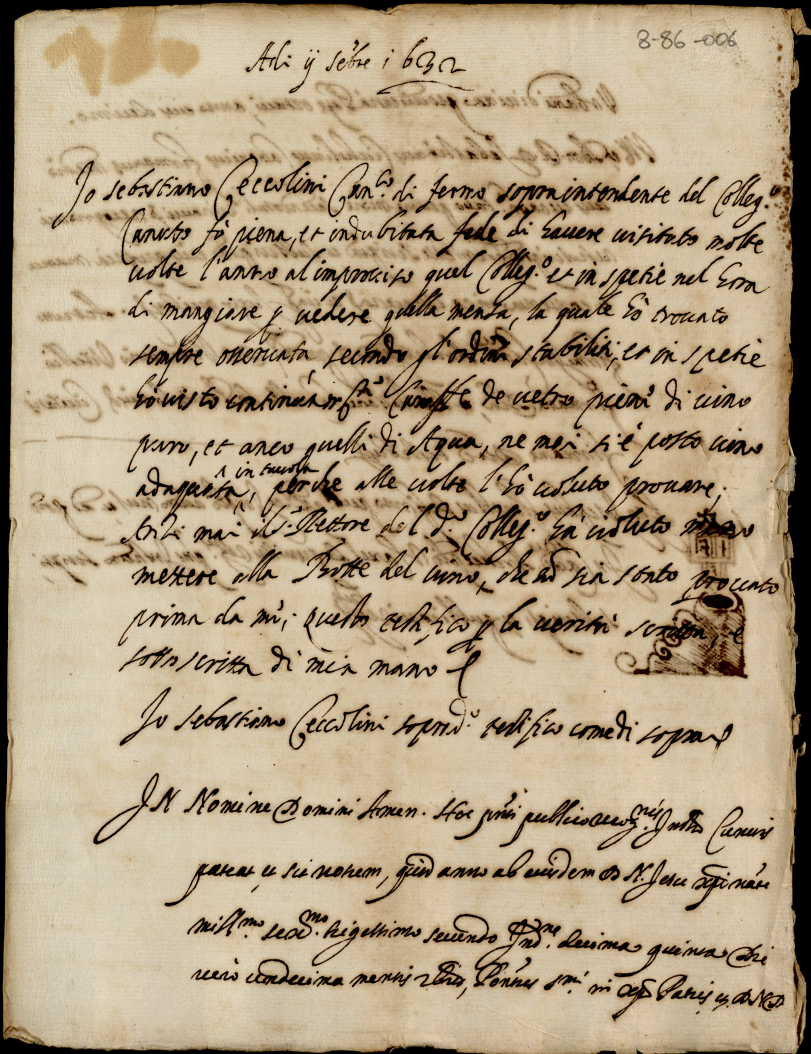 8-86-006
Adi ij 7bre 1632
Io Sebastiano Ceccolini Can.co di fermo sopraintendente del Colleg.o
fò piena, et indubitata fede di havere visitato molte
volte l'anno al'improviso quel Colleg.o et in spetie nel hora
di mangiare p vedere quella mensa, la quale hò trovato
sempre osservata, secondo gl'ordini stabiliti, et in spetie
hò visto de vetro pieni di vino
puro, et anco quelli di Aqua, ne mai si è posto vino
adaquato in tavola, perche alle volte l'hò voluto provare;
Anzi mai il S.r Rettore del d.o Colleg.o hà voluto
mettere alla Botte del vino, che nō sia stato provato
prima da mè; questo testifico p la verità scritta, e
sottoscritta di mia mano
Io Sebastiano Ceccolini soprad.o testifico come di sopra
IN Nomine Domini Amen. Hoc pñti publico Cunctis
pateat, et sit notum, quod anno ab eiusdem D N. Jesu xpi nate
mill.mo sex.mo trigessimo secundo Ind.ne decima quinta Die
vero undecima mensis 7bris, Pontus S.mi in xpo Patris, et D N D